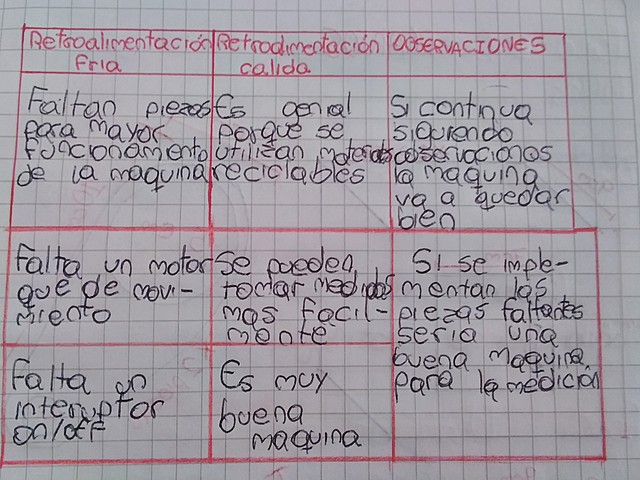 Retroalimentación
fria
Retroalimentación
calida
OBSERVACIONES
Faltan piezas
para mayor
funcionamento
de la maquina
Es genial
porque se
utilizan materiales
reciclables
Si continua
siguiendo
observaciones
la maquina
va a quedar
bien
Falta un motor
que de movi-
miento
Se pueden
tomar medidas
mas facil-
mente
Si se imple-
mentan las
piezas faltantes
seria una
buena maquina
para la medición
Falta un
interuptor
on/off
Es muy
buena
maquina